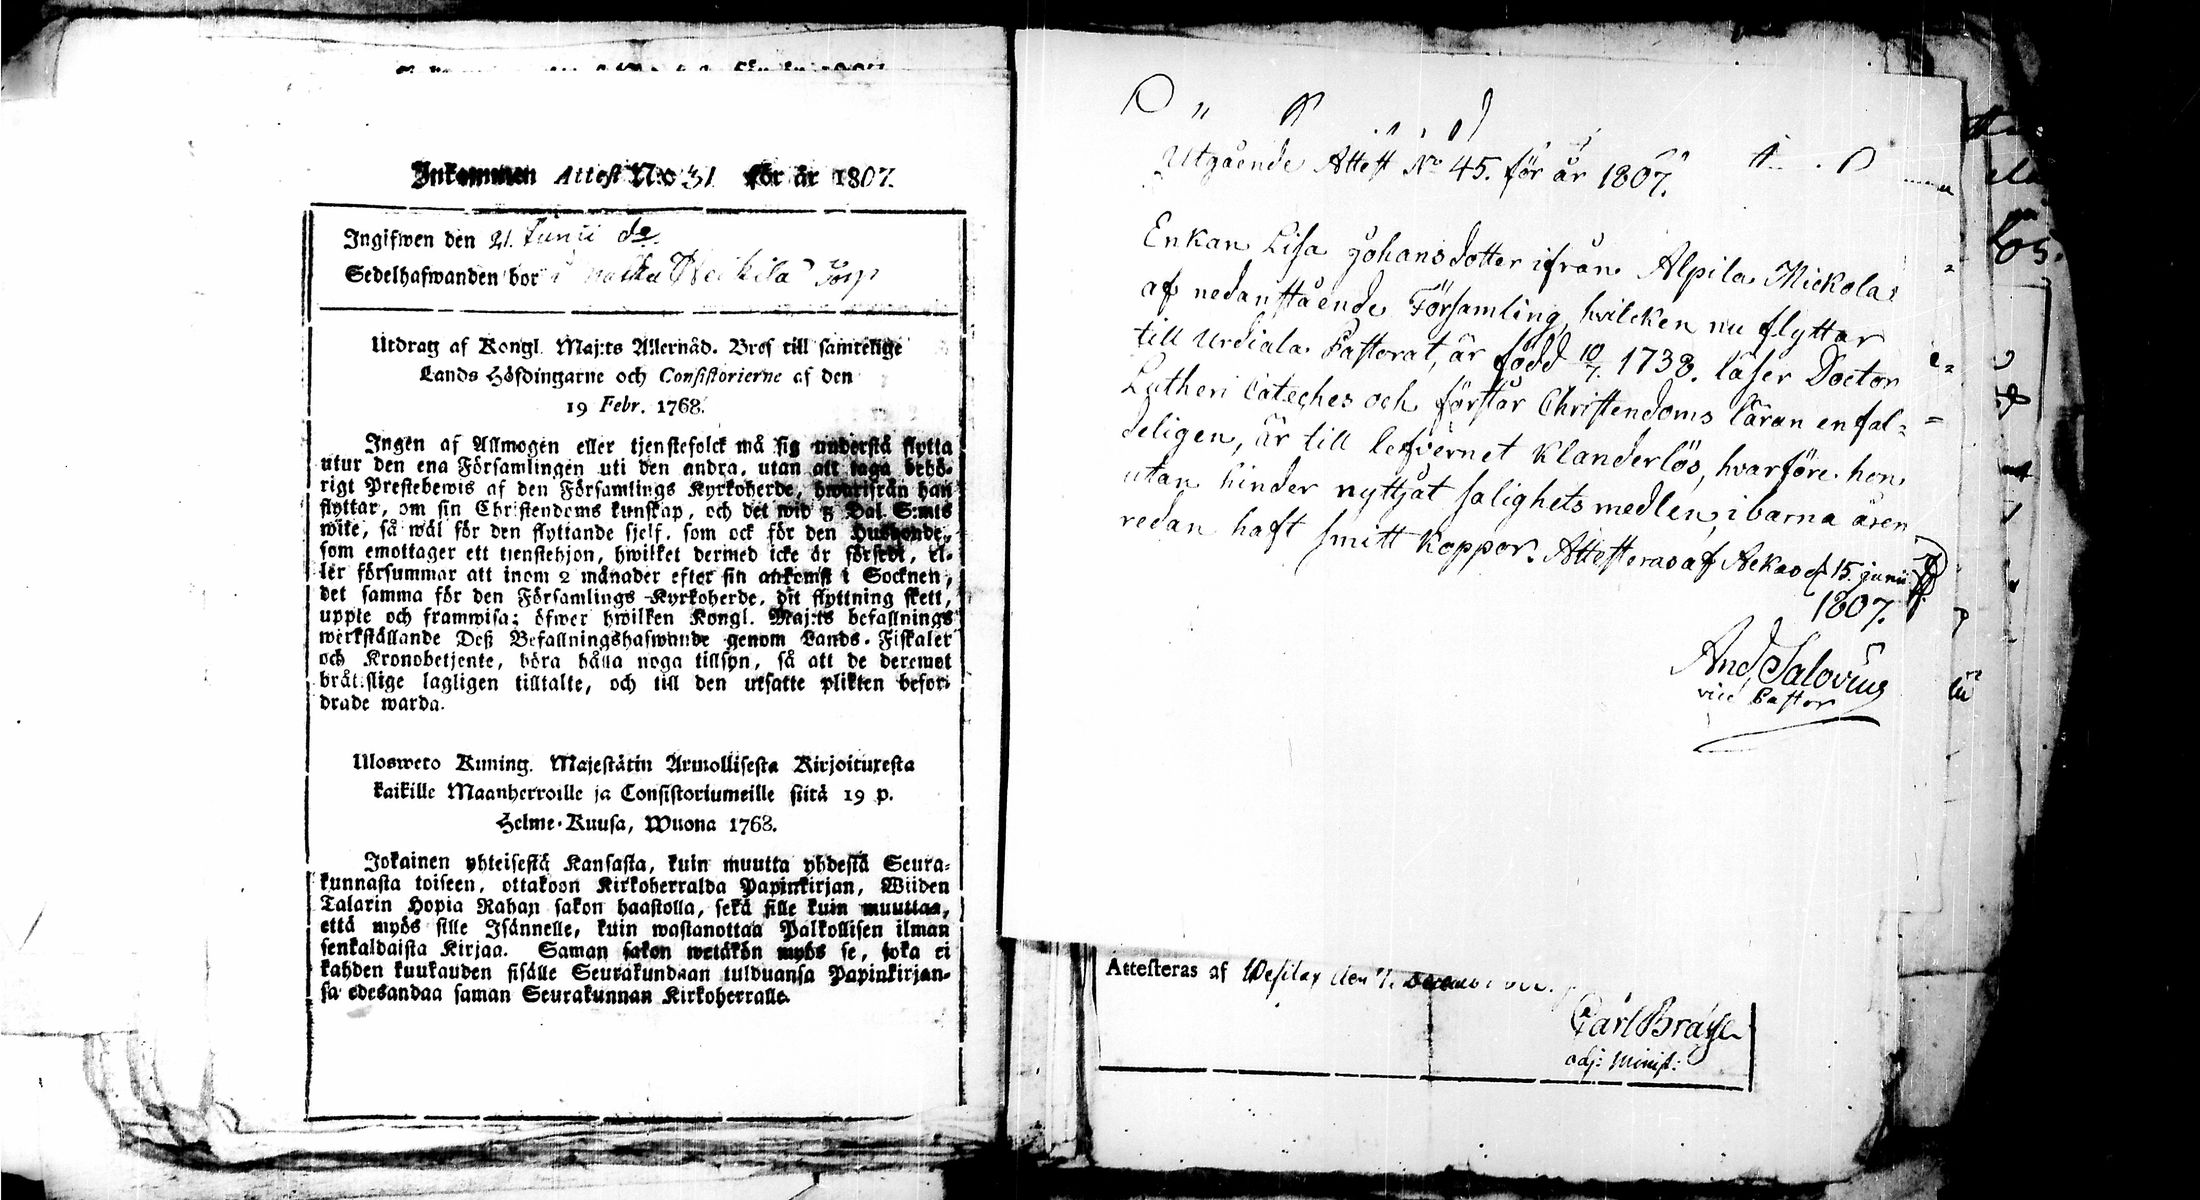 Inkommen Attest No 31 för år 1807.
Ingifwen den 21. Junii
Sedelhafwanden bor Torp
Utdrag af Kongl. Maj:ts Allernåd. Bref till samtelige
Lands Höfdingarne och Consistorierne af den
19 Febr. 1768.
Ingen af Allmogen eller tjenstefolck må sig understå flytta
utur den ena Församlingen uti den andra, utan att taga behö-
rigt Prestebewis af den Församlings Kyrkoherde, hwarifrån han
flyttar, om sin Christendoms kunskap, och det wid 5 Dal. S:mts
wite, så wäl för den flyttande sjelf, som ock för den Husbonde,
som emottager ett tjenstehjon, hwilket dermed icke är försedt, el-
ler försummar att inom 2 månader efter sin ankomst i Socknen,
det samma för den Församlings Kyrkoherde, dit flyttning skett,
uppte och framwisa; öfwer hwilken Kongl. Maj:ts befallnings
werkställande Deß Befallningshafwande genom Lands-Fiskaler
och Kronobetjente, böra hålla noga tillsyn, så att de deremot
bråtslige lagligen tilltalte, och till den utsatte plikten befor-
drade warda.
Ulosweto Kuning. Majestätin Armollisesta Kirjoituxesta
kaikille Maanherroille ja Consistoriumeille siitä 19 p.
Helme-Kuusa, Wuona 1768.
Jokainen yhteisestä Kansasta, kuin muutta yhdestä Seura-
kunnasta toiseen, ottakoon Kirkoherralda Papinkirjan, Wiiden
Talarin Hopia Rahan sakon haastolla, sekä sille kuin muuttaa,
että myös sille Isännelle, kuin wastanottaa Palkollisen ilman
senkaldaista Kirjaa. Saman sakon wetäkön myös se, joka ei
kahden kuukauden sisälle Seurakundaan tulduansa Papinkirjan-
sa edesandaa saman Seurakunnan Kirkoherralle.
Utgående Attest No 45. för år 1807.
Enkan Lisa Johansdotter ifrån Alpila Mickola
af nedanstående Församling, hvilcken nu flyttar
till Urdiala Pastorat, är född 10/7. 1738. läser Doctor
Lutheri Cateches och förstår Christendoms läran enfal-
deligen, är till lefvernet klanderlös, hvarföre hon
utan hinder nyttjat salighetsmedlen, i barna åren
redan haft smitt koppor. Attesteras af Aekas d 15. junii
1807.
And Salovius
vice Pastor
Attesteras af Wesilax den 7.
Carl Bra
adj: Minist: